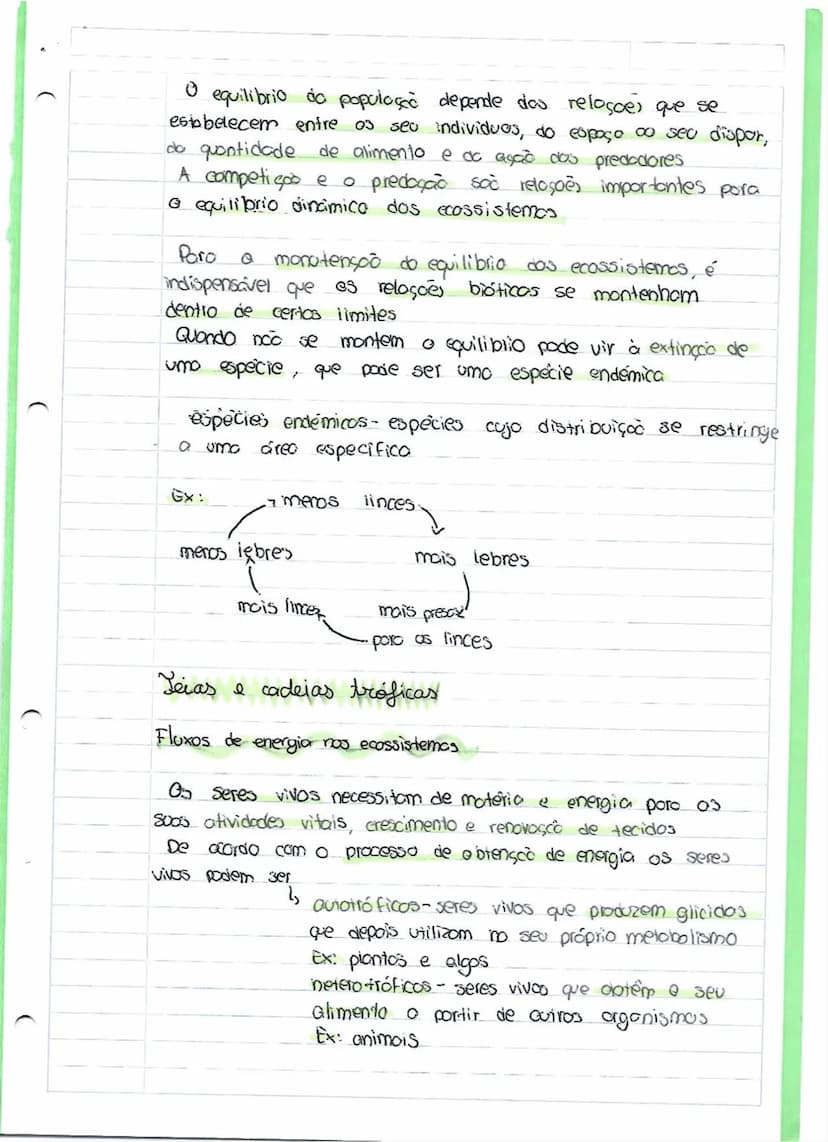 O equilíbrio da população depende das relações que se
estabelecem entre os seu individuos, do espaço ao seu dispor,
da quantidade de alimento e da ação dos predadores
A competição e a predação são relações importantes para
o equilíbrio dinâmico dos ecossistemas
Para a manutenção do equilíbrio dos ecossistemas, é
indispensável que as relações bióticas se mantenham
dentro de certos limites
Quando não se mantem o equilibiio pode vir à extinção de
uma espécie, que pode ser uma espécie endémica
espécies endémicas - espécies cuja distribuição se restringe
a uma área específica
Ex: → menos linces
menos lebres mais lebres
mais linces mais presas
para os linces
Teias e cadeias tróficas
Fluxos de energia nos ecossistemas
Os seres vivos necessitam de matéria e energia para as
suas atividades vitais, crescimento e renovação de tecidos
De acordo com o processo de obtenção de energia os seres
vivos podem ser
↳ autotróficos - seres vivos que produzem glícidos
que depois utilizam no seu próprio metabolismo
Ex: plantas e algas
heterotróficos - seres vivos que obtêm o seu
alimento a partir de outros organismos
Ex: animais